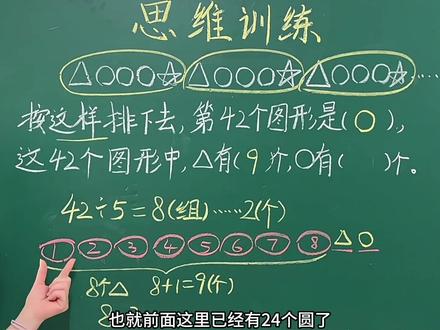 思维训练
△○○○☆ △○○○☆ △○○○☆ ……
按这样排下去，第42个图形是(○)，
这42个图形中，△有(9)个，○有( )个。
42÷5=8(组)……2(个)
① ② ③ ④ ⑤ ⑥ ⑦ ⑧ △ ○
8个△ 8+1=9(个)
也就前面这里已经有24个圆了